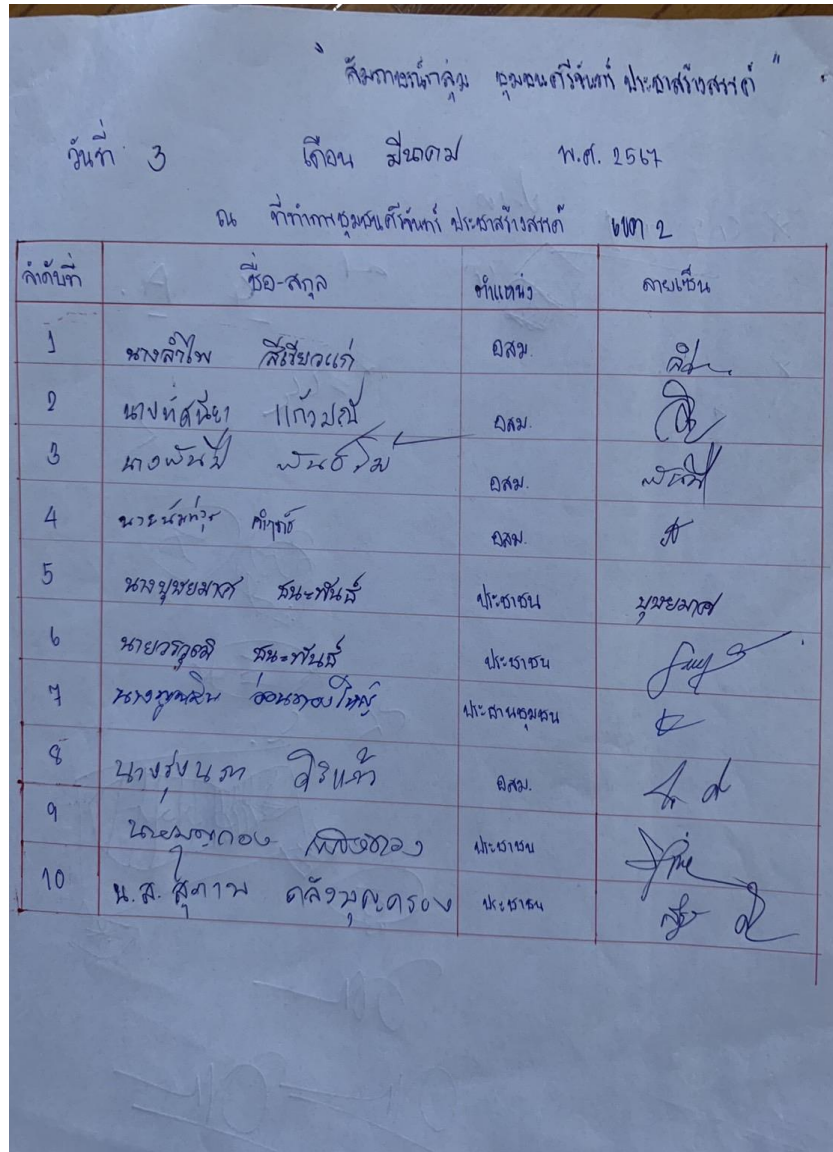 " สัมภาษณ์กลุ่ม ชุมชนศรีจันทร์ ประชาสร้างสรรค์ "
วันที่ 3 เดือน มีนาคม พ.ศ. 2567
ณ ที่ทำการชุมชนศรีจันทร์ ประชาสร้างสรรค์ เขต 2
ลำดับที่ ชื่อ-สกุล ตำแหน่ง ลายเซ็น
1 นางลำไพ สีเขียวแก่ อสม.
2 นางทัศนียา แก้วมณี อสม.
3 นางพันปี อสม. พันปี
4 อสม.
5 นางบุษยมาศ ชนะพันธ์ ประชาชน บุษยมาศ
6 นายวรวุฒิ ชนะพันธ์ ประชาชน
7 อ่อนทองใหญ่ ประธานชุมชน
8 นางรุ่งนภา ศิริแก้ว อสม.
9 ประชาชน
10 น.ส. สุภาพ คลังบุญครอง ประชาชน